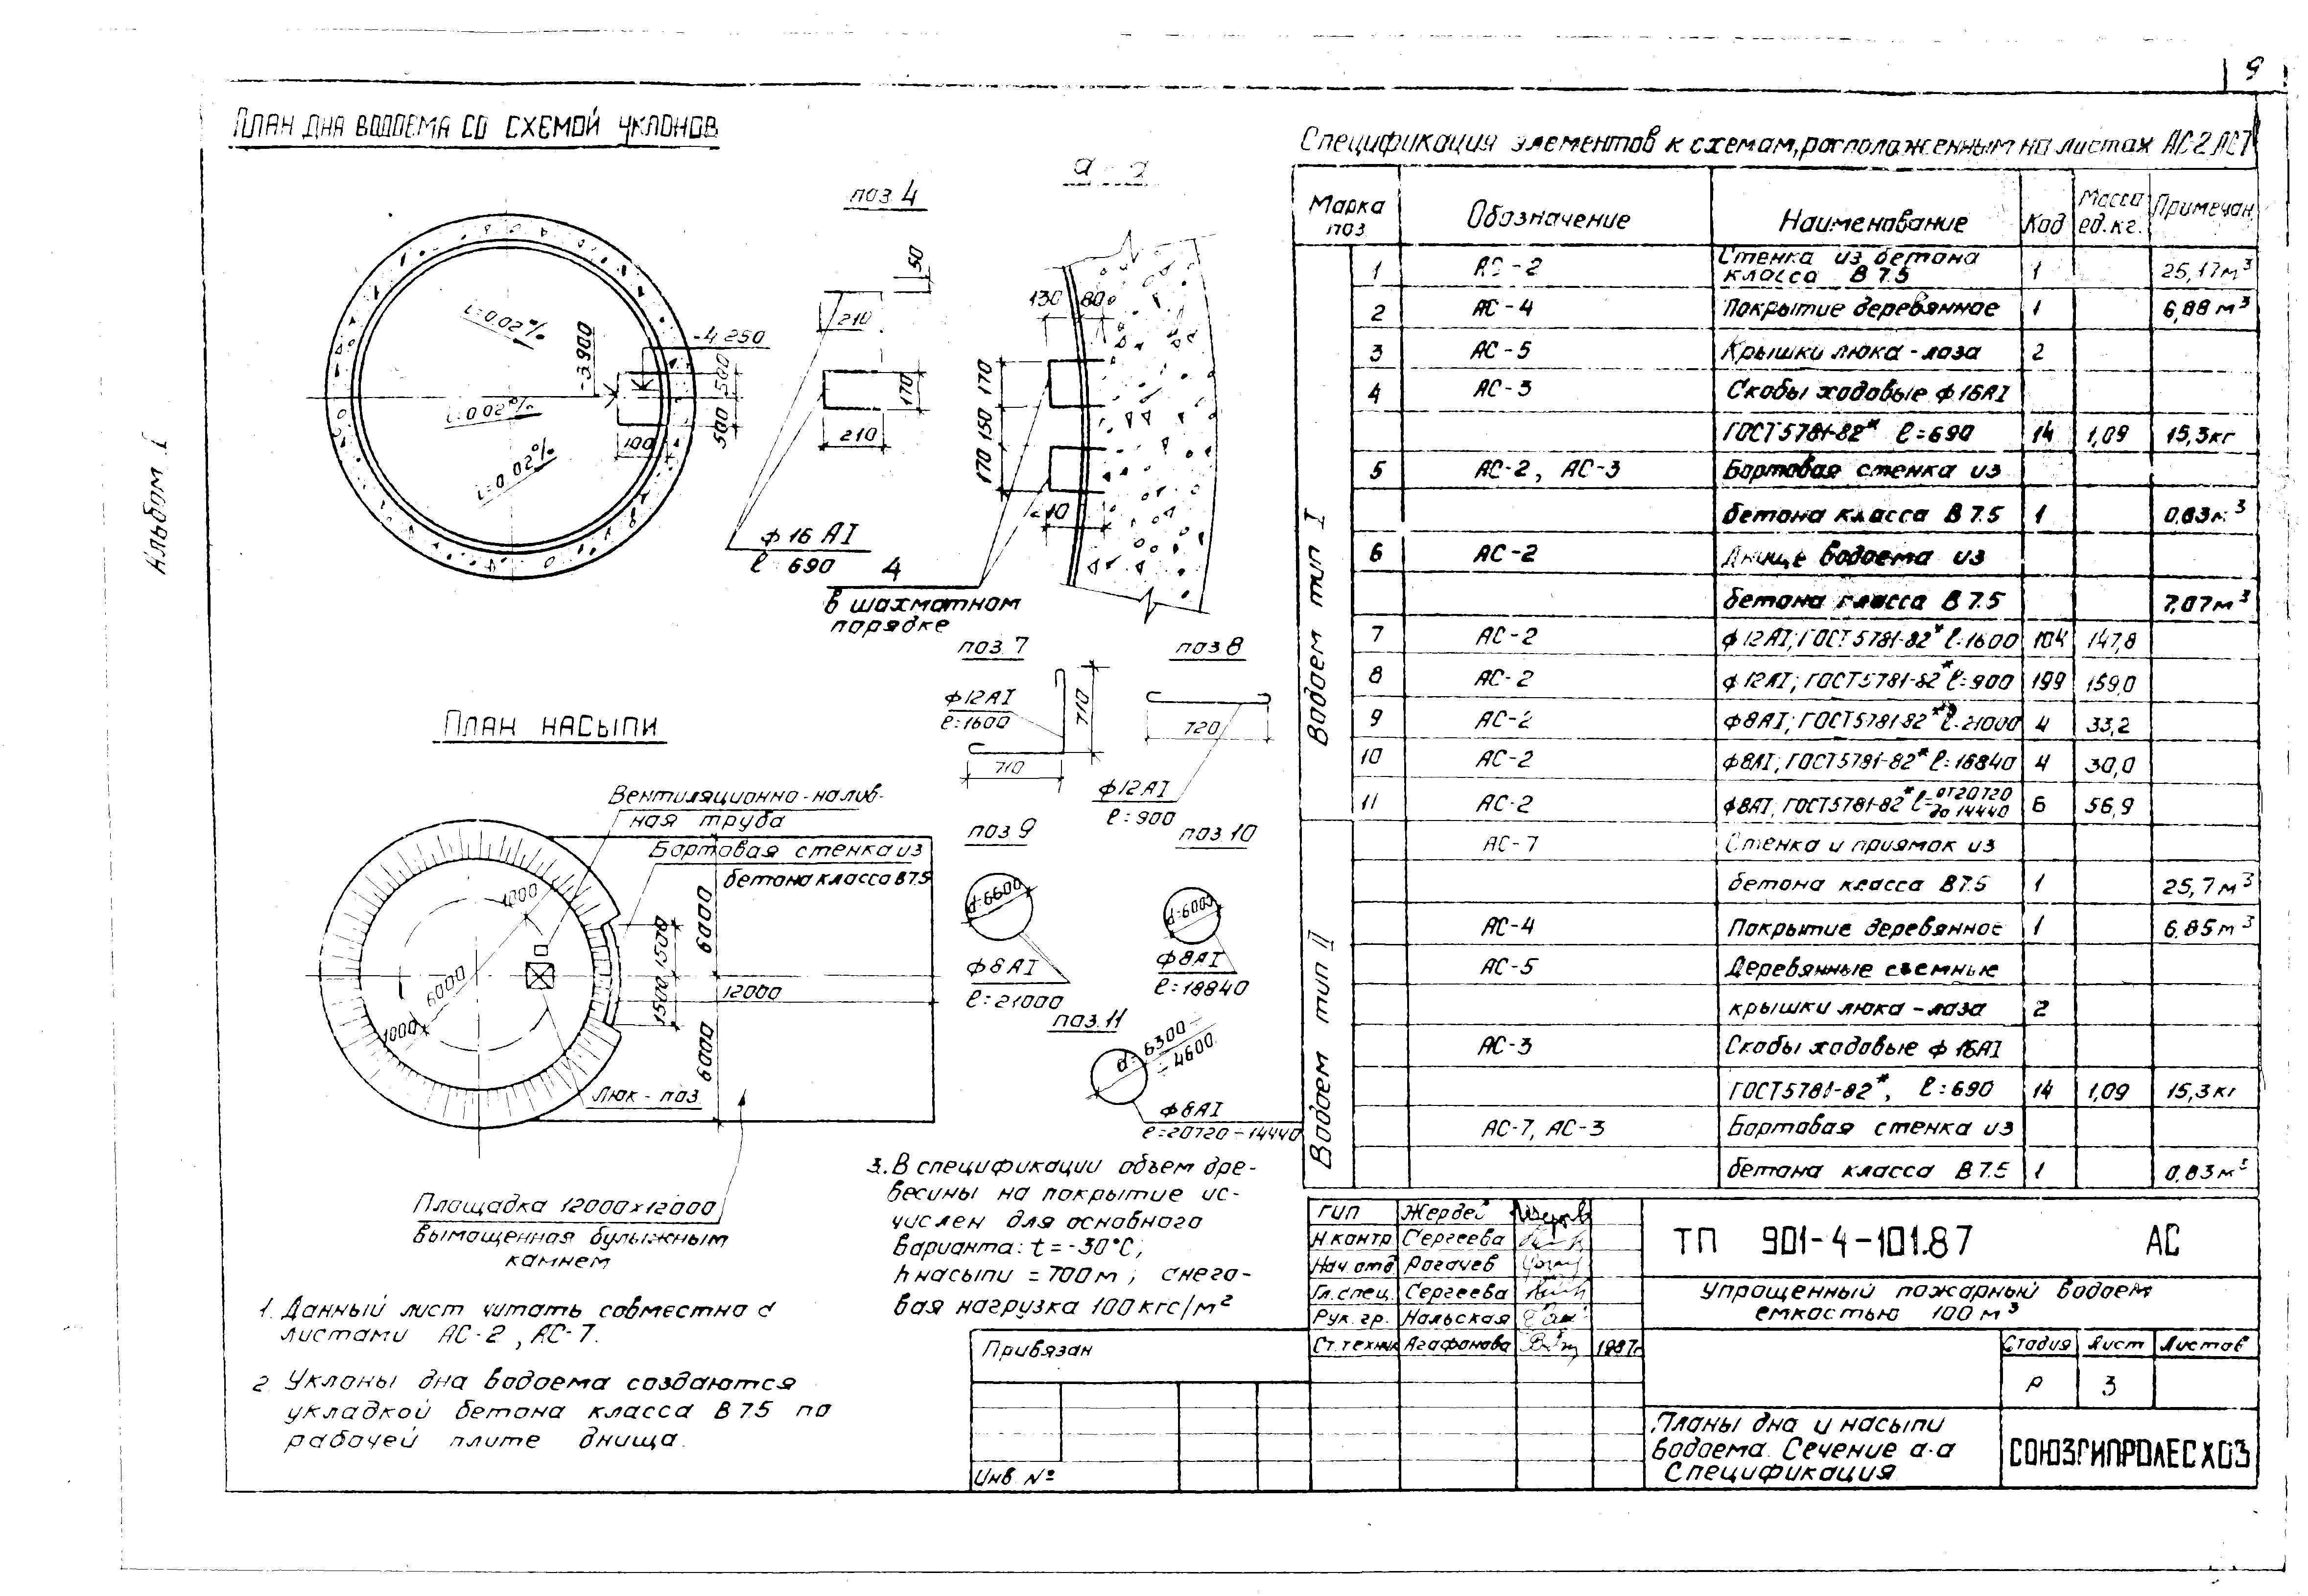 9
Альбом I
ПЛАН ДНА ВОДОЕМА СО СХЕМОЙ УКЛОНОВ
i=0.02%
-3.900
-4.250
i=0.02%
i=0.02%
500
500
100
поз. 4
50
210
170
210
ф 16 АI
ℓ=690
4
в шахматном
порядке
а-а
130
80
170
150
170
210
поз. 7
ф12АI
ℓ=1600
710
710
поз 8
720
ф12АI
ℓ=900
поз 9
d=6600
ф8АI
ℓ=21000
поз. 10
d=6000
ф8АI
ℓ=18840
поз. 11
d=6300-
-4600
ф8АI
ℓ=20720-14440
ПЛАН НАСЫПИ
Вентиляционно-налив-
ная труба
Бортовая стенка из
бетона класса В7.5
1000
6000
1000
1500
1500
6000
6000
12000
Люк-лаз
Площадка 12000х12000
вымощенная булыжным
камнем
1. Данный лист читать совместно с
листами АС-2, АС-7.
2 Уклоны дна водоема создаются
укладкой бетона класса В 7.5 по
рабочей плите днища.
3. В спецификации объем дре-
весины на покрытие ис-
числен для основного
варианта: t=-30°С;
h насыпи = 700м; снего-
вая нагрузка 100 кгс/м²
Спецификация элементов к схемам, расположенным на листах АС-2 АС7
Марка поз Обозначение Наименование Код Масса ед.кг. Примечан.
Водоем тип I
1 АС-2 Стенка из бетона
класса В 7.5 1 25,17м³
2 АС-4 Покрытие деревянное 1 6,88 м³
3 АС-5 Крышки люка-лаза 2
4 АС-3 Скобы ходовые ф 16АI
ГОСТ 5781-82* ℓ=690 14 1,09 15,3кг
5 АС-2, АС-3 Бортовая стенка из
бетона класса В 7.5 1 0.83м³
6 АС-2 Днище водоема из
бетона класса В 7.5 7,07м³
7 АС-2 ф 12АI; ГОСТ 5781-82* ℓ=1600 104 147,8
8 АС-2 ф 12АI; ГОСТ 5781-82* ℓ=900 199 159,0
9 АС-2 ф8АI; ГОСТ5781-82* ℓ=21000 4 33,2
10 АС-2 ф8АI; ГОСТ5781-82* ℓ=18840 4 30,0
11 АС-2 ф8АI; ГОСТ5781-82* ℓ=от20720 до 14440 6 56,9
Водоем тип II
АС-7 Стенка и приямок из
бетона класса В7.5 1 25,7м³
АС-4 Покрытие деревянное 1 6.85м³
АС-5 Деревянные съемные
крышки люка-лаза 2
АС-3 Скобы ходовые ф 16АI
ГОСТ5781-82*, ℓ=690 14 1,09 15,3кг
АС-7, АС-3 Бортовая стенка из
бетона класса В 7.5 1 0.83м³
ГИП Жердей
Н контр Сергеева
Нач. отд Рогачев
Гл. спец. Сергеева
Рук. гр. Нальская
Ст. техник Агафонова 1987г
ТП 901-4-101.87 АС
Упрощенный пожарный водоем
емкостью 100 м³
Стадия Лист Листов
Р 3
Планы дна и насыпи
водоема. Сечение а-а
Спецификация
СОЮЗГИПРОЛЕСХОЗ
Привязан
Инв. №